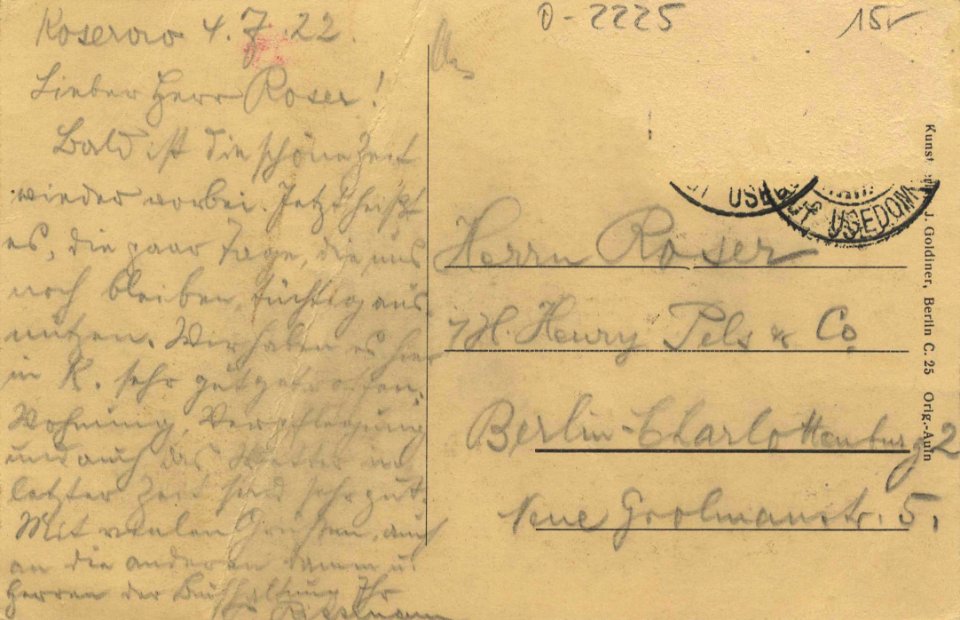 Koserow 4.7.22.
O-2225
15,-
Lieber Herr Roser!
Bald ist die schöne Zeit
wieder vorbei. Jetzt heißt
es, die paar Tage, die uns
noch bleiben, tüchtig aus
nutzen. Wir haben es hier
in K. sehr gut getroffen.
Wohnung, Verpflegung
und auch das Wetter in
letzter Zeit sind sehr gut.
Mit vielen Grüssen, auch
an die anderen Damm u.
Herren der Buchhaltung Ihr
USEDOM
Herrn Roser
Henry Pels & Co
Berlin-Charlottenburg 2
Neue Grolmanstr. 5.
Kunst J. Goldiner, Berlin C. 25 Orig.-Aufn